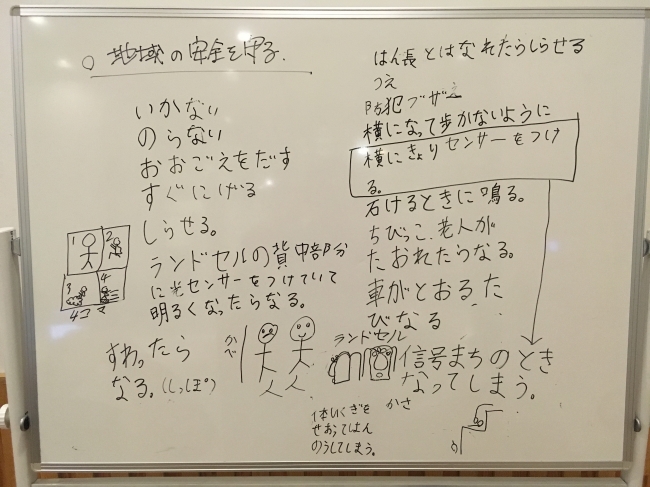 ○ 地域の安全を守る.
いかない
のらない
おおごえをだす
すぐにげる
しらせる。
1 2
3 4
4コマ
ランドセルの背中部分
に光センサーをつけていて
明るくなったらなる。
すわったら
なる。(しっぽ)
かべ
はん長とはなれたらしらせる
つえ
防犯ブザー
横になって歩かないように
横にきょりセンサーをつけ
る。
石けるときに鳴る。
ちびっこ、老人が
たおれたらなる。
車がとおるた
びなる
ランドセル
信号まちのとき
なってしまう。
かさ
体いくぎを
せおってはん
のうしてしまう。